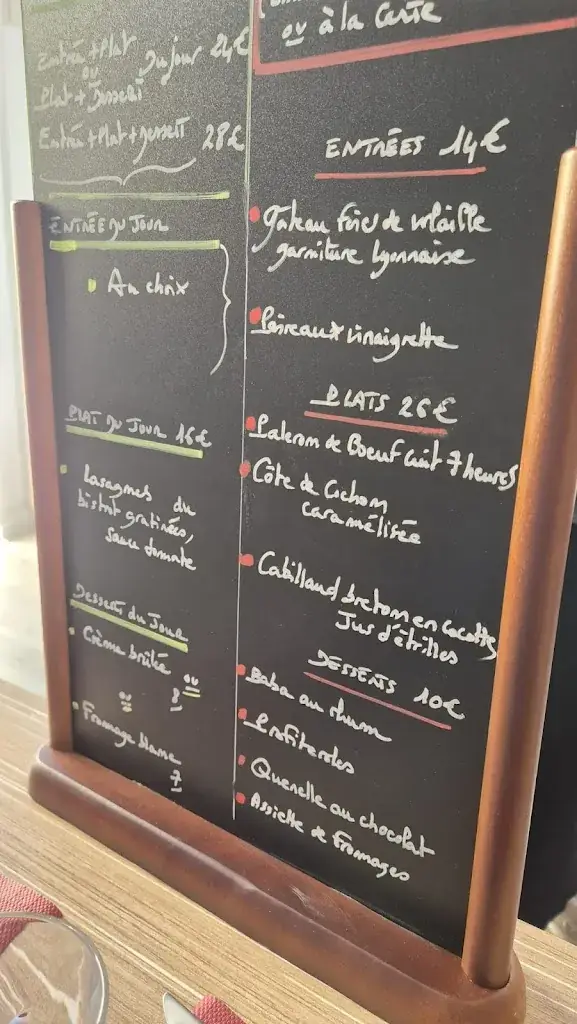 Entrée + Plat
ou
Plat + Dessert
Du jour 24€
Entrée + Plat + dessert 28€
ENTRÉE DU JOUR
Au choix
PLAT DU JOUR 16€
Lasagnes du
bistrot gratinées,
sauce tomate
Desserts du Jour
Crème brûlée
ou
8
ou
Fromage blanc
7
ou à la Carte
ENTRÉES 14€
Gâteau foies de volaille
garniture lyonnaise
Poireaux vinaigrette
PLATS 26€
Paleron de Boeuf cuit 7 heures
Côte de Cochon
caramélisée
Cabillaud breton en cocotte
Jus d'étrilles
DESSERTS 10€
Baba au rhum
Profiteroles
Quenelle au chocolat
Assiette de Fromages